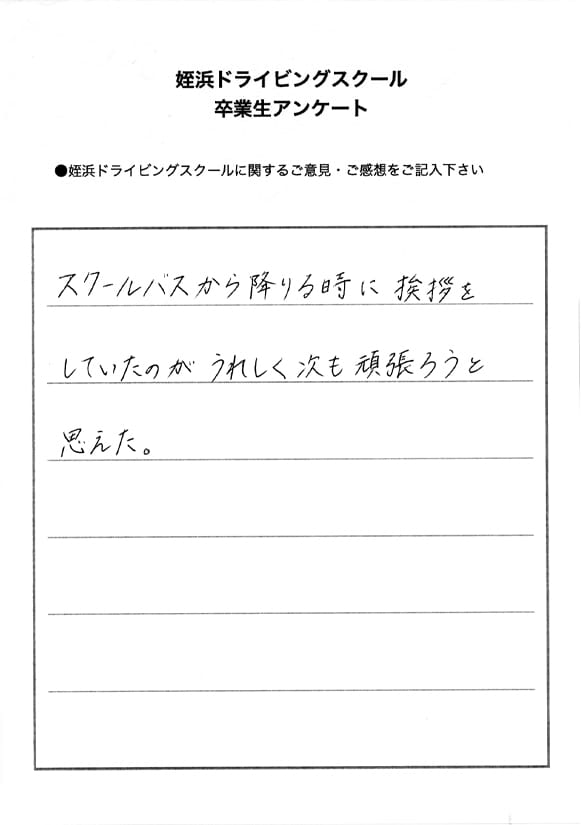 姪浜ドライビングスクール
卒業生アンケート
●姪浜ドライビングスクールに関するご意見・ご感想をご記入下さい
スクールバスから降りる時に挨拶を
していたのがうれしく次も頑張ろうと
思えた。